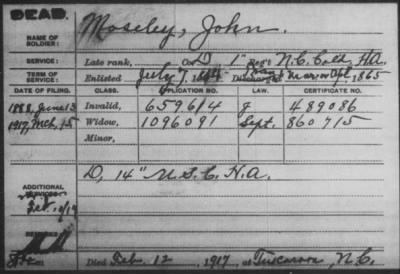 DEAD.
NAME OF SOLDIER: Moseley, John.
SERVICE: Late rank, Co. D, 1" Reg't N.C. Cold, H.A.
TERM OF SERVICE: Enlisted July 7, 1864 Discharged Mar or Apl, 1865
DATE OF FILING. CLASS. APPLICATION NO. LAW. CERTIFICATE NO.
1888, June 13 Invalid, 659614 g 489086
1917, Mch, 15 Widow, 1096091 Sept. 860715
Minor,
D, 14" U.S.C.H.A.
ADDITIONAL SERVICES:
REMARKS:
Died Feb. 12, 1917, at Tuscarora, N.C.